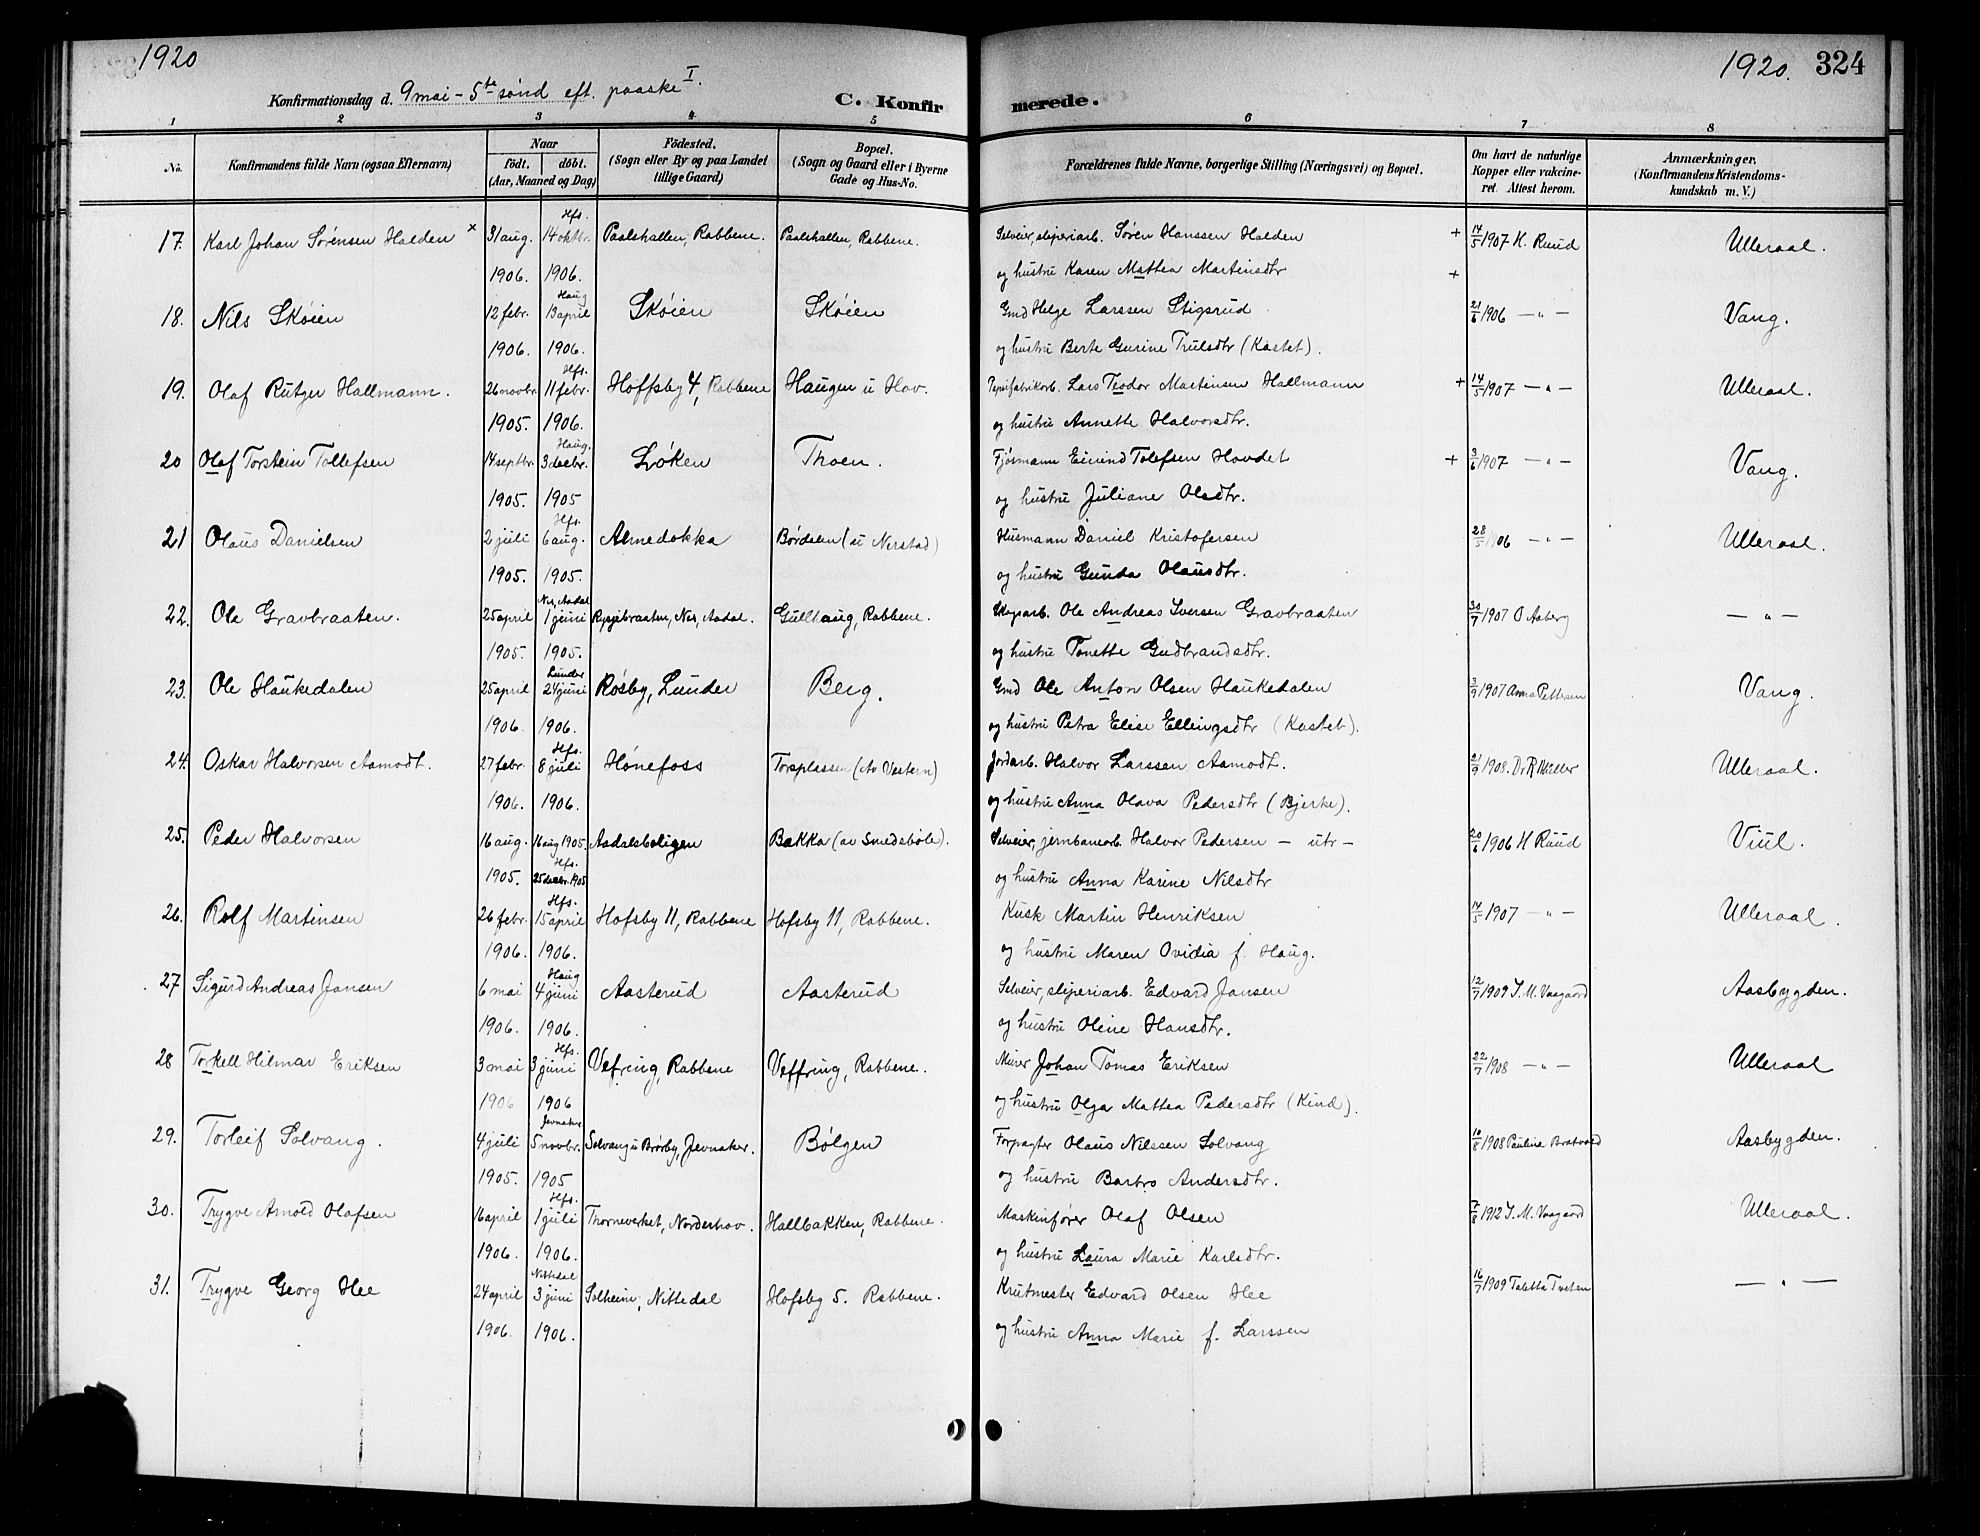 1920
1920. 324
Konfirmationsdag d. 9 mai - 5te sönd eft. paaske I.
C. Konfirmerede.
1 2 3 4 5 6 7 8
No. Konfirmandens fulde Navn (ogsaa Efternavn) Naar födt. döbt. (Aar, Maaned og Dag) Födested. (Sogn eller By og paa Landet tillige Gaard) Bopæl. (Sogn og Gaard eller i Byerne Gade og Hus-No. Forældrenes fulde Navne, borgerlige Stilling (Næringsvei) og Bopæl. Om havt de naturlige Kopper eller vakcineret. Attest herom. Anmærkninger. (Konfirmandens Kristendomskundskab m. V.)
Hfs.
17. Karl Johan Sørensen Halden × 31 aug. 14 oktbr. Paalshallen, Rabbene. Paalshallen, Rabbene. Selveier, sliperiarb. Søren Hanssen Halden + 14/5 1907 H. Ruud Ulleraal.
1906. 1906. og hustru Karen Mattea Martinsdtr +
Haug
18. Nils Skøien 12 febr. 13 april Skøien Skøien Gmd Helge Larssen Stigsrud 21/6 1906 — " — Vang.
1906. 1906. og hustru Berte Gurine Trulsdtr (Kastet).
Hfs.
19. Olaf Rutger Hallmann. 26 novbr. 11 febr. Hoffsby 4, Rabbene Haugen u Hov. Papirfabrikarb. Lars Teodor Martinsen Hallmann + 14/5 1907 — " — Ulleraal.
1905. 1906. og hustru Annette Halvorsdtr.
Haug.
20 Olaf Torstein Tollefsen 14 septbr. 3 decbr. Løken Thoen. Fjøsmann Eivind Tolefsen Hovdet + 3/6 1907 — " — Vang.
1905. 1905 og hustru Juliane Olsdtr.
Hfs.
21 Olaus Danielsen 2 juli 6 aug. Almedokka Børdalen (u Nerstad) Husmann Daniel Kristofersen 28/5 1906 — " — Ulleraal.
1905. 1905. og hustru Gunda Olausdtr.
Nes, Aadal
22. Ole Gravbraaten. 25 april 1 juni Nes, Aadal. Gullhaug, Rabbene. Ole Andreas Iversen Gravbraaten 30/7 1907 O Aaberg — " —
1905. 1905. og hustru Tonette Gudbrandsdtr.
Lunder
23. Ole Haukedalen 25 april 24 juni Røsby, Lunder Berg. Gmd Ole Anton Olsen Haukedalen 3/9 1907 Anna Pettersen Vang.
1906. 1906. og hustru Petra Elise Ellingsdtr (Kastet).
Hfs.
24. Oskar Halvorsen Aamodt. 27 febr. 8 juli Hønefoss Torsplassen (Av Vestern) Jordarb. Halvor Larssen Aamodt. 21/9 1908. Dr R Müller Ulleraal.
1906. 1906. og hustru Anna Olava Pedersdtr (Bjerke).
25. Peder Halvorsen 16 aug. 16 aug 1905. Aadalsboligen Bakka (av Smedsbøle). Selveier, jernbanearb. Halvor Pedersen — utr — 20/6 1906 H Ruud Viul.
Hfs.
1905. 25 decbr. 1905 og hustru Anna Karine Nilsdtr
Hfs.
26. Rolf Martinsen 26 febr. 15 april Hofsby 11, Rabbene Hofsby 11, Rabbene. Kusk Martin Henriksen 14/5 1907 — " — Ulleraal.
1906. 1906. og hustru Maren Ovidia f. Haug.
Haug
27 Sigurd Andreas Jansen 6 mai 4 juni Aasterud Aasterud Selveier, sliperiarb. Edvard Jansen 12/7 1909 J. M. Vaagaard Aasbygden.
1906. 1906. og hustru Oline Hansdtr.
Hfs.
28 Torkell Hilmar Eriksen 3 mai 3 juni Vefring, Rabbene Veffring, Rabbene. Murer Johan Tomas Eriksen 22/7 1908 — " — Ulleraal
1906 1906 og hustru Olga Mattea Pedersdtr (Kind).
Jevnaker
29. Torleif Solvang. 4 juli 5 novbr. Solvang u Brørby, Jevnaker. Bølgen Forpagter Olaus Nilssen Solvang 10/8 1908 Pauline Bratvold Aasbygden.
1905. 1905 og hustru Barbro Andersdtr.
Hfs.
30. Trygve Arnold Olafsen 16 april 1 juli Thorneverket, Norderhov. Hallbakken, Rabbene. Maskinfører Olaf Olsen 7/8 1912 J. M. Vaagaard Ulleraal.
1906. 1906. og hustru Laura Marie Karlsdtr.
Nittedal
31. Trygve Georg Hee 24 april 3 juni Solheim, Nittedal Hofsby 5. Rabbene. Krutmester Edvard Olsen Hee 16/7 1909 Taletta Tveten — " —
1906. 1906. og hustru Anna Marie f. Larssen